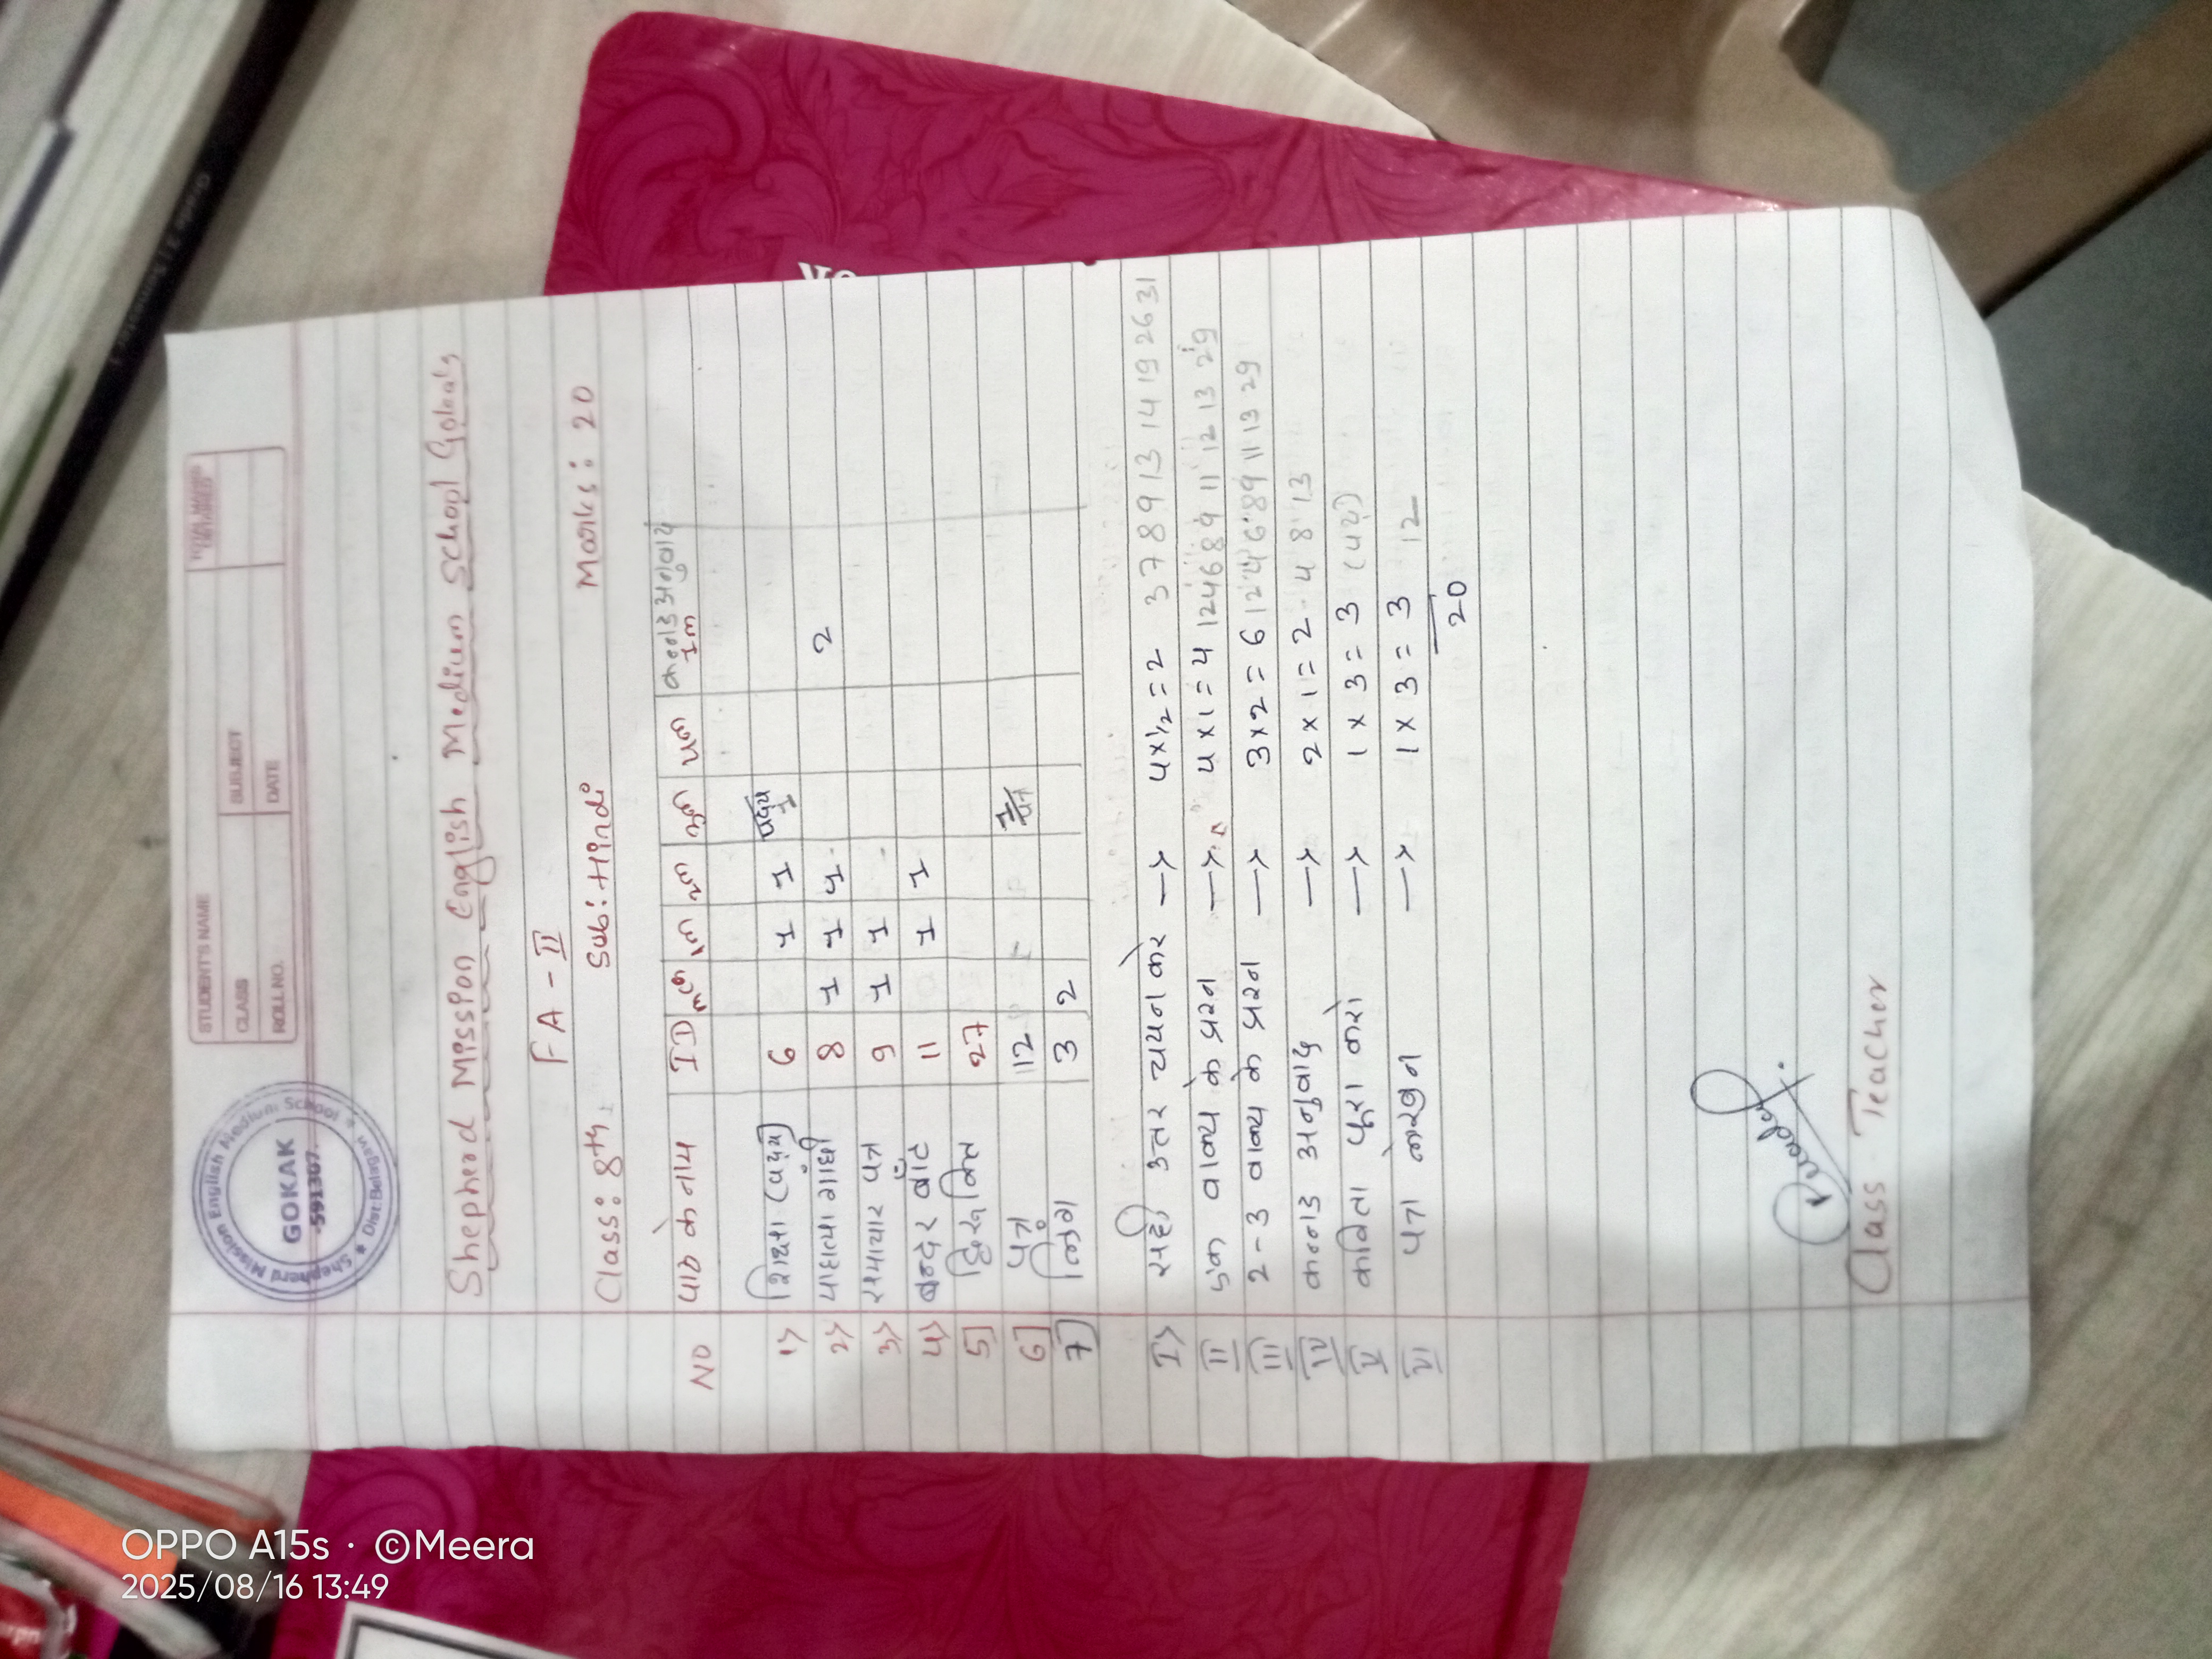 STUDENT'S NAME
CLASS
SUBJECT
ROLL NO.
DATE
Shepherd Mission English Medium School
GOKAK
591307
Dist: Belagavi
Shepherd Mission English Medium School Gokak
FA - II
Class: 8th
Sub: Hindi
Marks: 20
NO पाठ के नाम ID mcq 1m 2m कन्नड अनुवाद 1m
1> (पद्य) 6 1 1 पद्य 1
2> गांधी 8 1 1 1 2
3> समाचार पत्र 9 1 1
4> बन्दर बाँट 11 1 1
5] 27
6] पत्र 12 1 पत्र
7] लिंग 3 2
I> सही उत्तर चयन कर → 4 x 1/2 = 2 3 7 8 9 13 14 19 26 31
II एक वाक्य के प्रश्न → 4 x 1 = 4 1 2 4 6 8 9 11 12 13 29
III 2-3 वाक्य के प्रश्न → 3 x 2 = 6 1 2 4 6 8 9 11 13 29
IV कन्नड अनुवाद → 2 x 1 = 2 4 8 13
V कविता पूरा करो → 1 x 3 = 3 (पद्य)
VI पत्र लेखन → 1 x 3 = 3 12
20
Class Teacher
OPPO A15s · ©Meera
2025/08/16 13:49